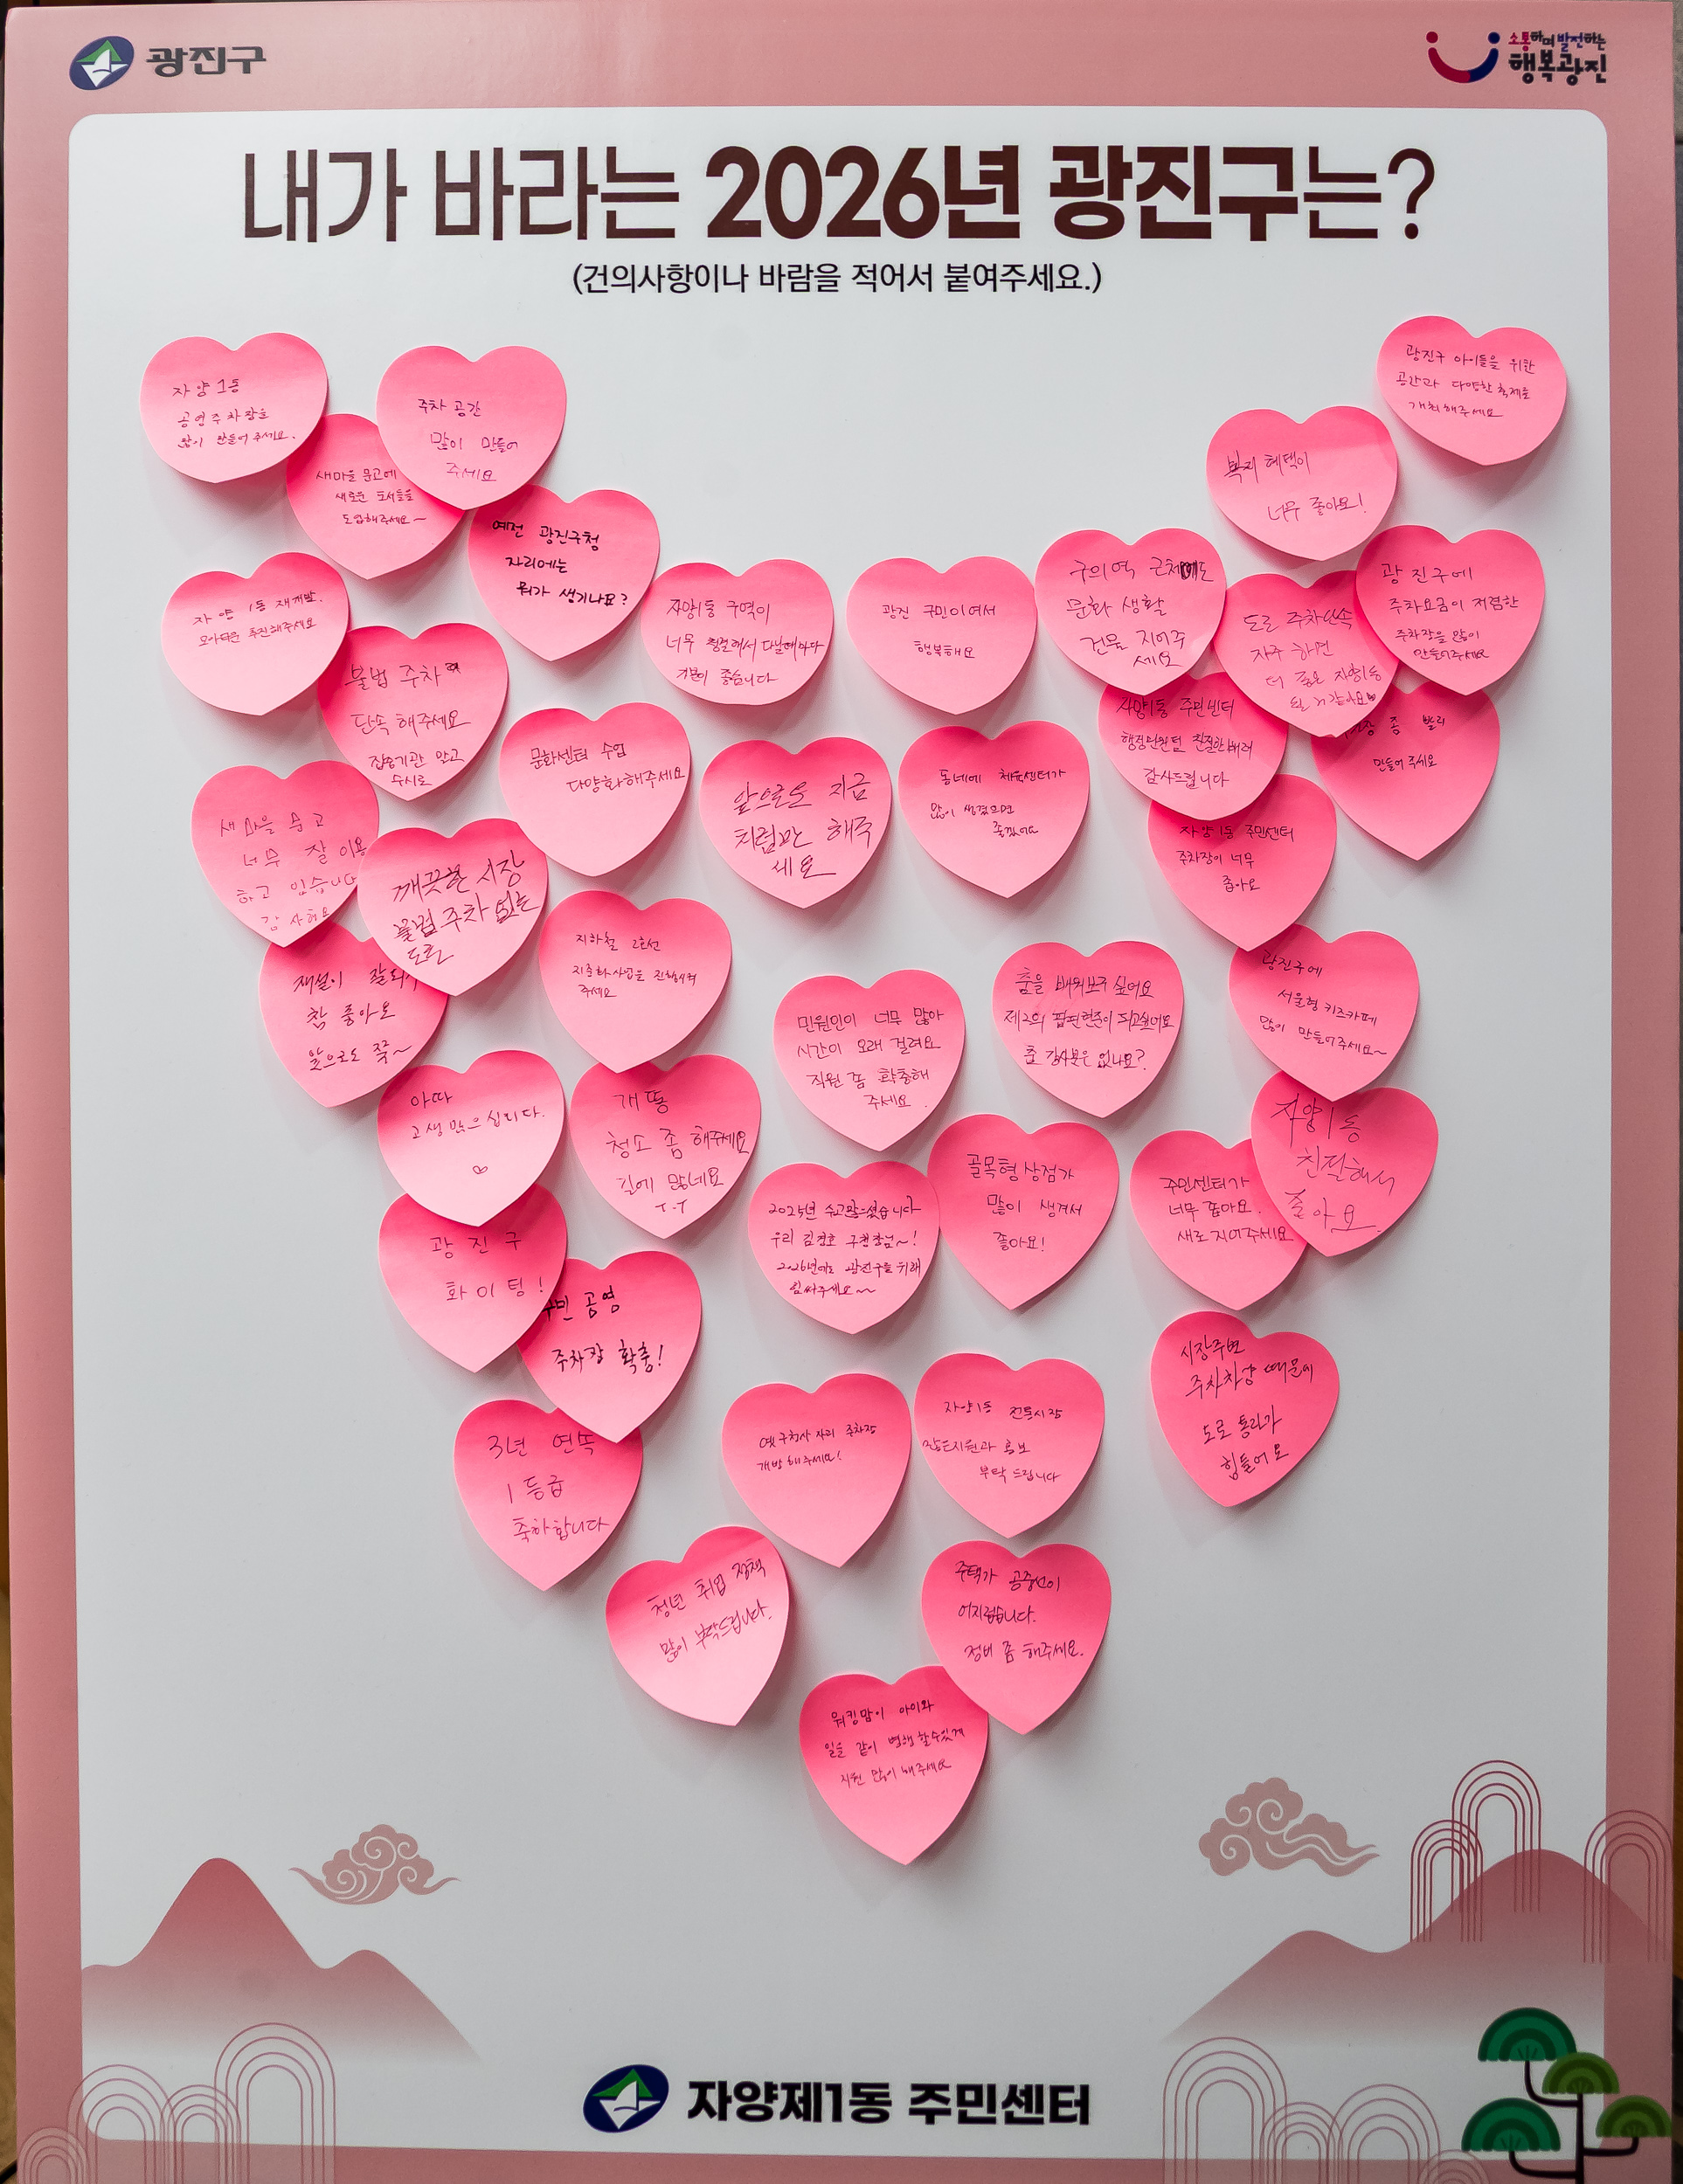 광진구
소통하며 발전하는
행복광진
내가 바라는 2026년 광진구는?
(건의사항이나 바람을 적어서 붙여주세요.)
자양1동
공영주차장을
많이 만들어 주세요.
주차 공간
많이 만들어
주세요
새마을 문고에
새로운 도서들을
도입해주세요~
예전 광진구청
자리에는
뭐가 생기나요?
광진구 아이들을 위한
공간과 다양한 축제를
개최해주세요
복지 혜택이
너무 좋아요!
자양 1동 재개발.
모아타운 추진해주세요
불법 주차
단속 해주세요
수시로
자양1동 구역이
너무 청결해서 다닐때마다
기분이 좋습니다
광진 구민이여서
행복해요
구의역 근처에도
문화 생활
건물 지어주
세요
도로 주차단속
자주 하면
더 좋은 자양1동
될 거 같아요
광진구에
주차요금이 저렴한
주차장을 많이
만들어주세요
문화센터 수업
다양화해주세요
앞으로도 지금
처럼만 해주
세요
동네에 체육센터가
많이 생겼으면
좋겠어요
자양1동 주민센터
행정민원팀 친절한배려
감사드립니다
좀 빨리
만들어 주세요
새마을 문고
너무 잘 이용
하고 있습니다
감사해요
깨끗한 시장
불법 주차 없는
도로
자양1동 주민센터
주차장이 너무
좁아요
제설이 잘되
참 좋아요
앞으로도 쭉~
지하철 2호선
지중화사업을 진행해
주세요
민원인이 너무 많아
시간이 오래 걸려요
직원 좀 확충해
주세요.
춤을 배워보고 싶어요
제2의 팝핀현준이 되고싶어요
춤 강사분은 없나요?
광진구에
서울형 키즈카페
많이 만들어주세요~
아따
고생 많으십니다.
개똥
청소 좀 해주세요
길에 많네요
T.T
2025년 수고많으셨습니다
우리 김경호 구청장님~!
2026년에도 광진구를 위해
힘써주세요~~
골목형상점가
많이 생겨서
좋아요!
주민센터가
너무 좁아요.
새로 지어주세요
자양1동
친절해서
좋아요
광진구
화이팅!
공영
주차장 확충!
시장주변
주차차량 때문에
도로 통과가
힘들어요
3년 연속
1등급
축하합니다
옛 구청사 자리 주차장
개방해주세요!
자양1동 전통시장
홍보
부탁 드립니다
청년 취업 정책
많이 부탁드립니다.
주택가 공중선이
어지럽습니다.
정비 좀 해주세요.
워킹맘이 아이와
일을 같이 병행할수있게
지원 많이 해주세요
자양제1동 주민센터